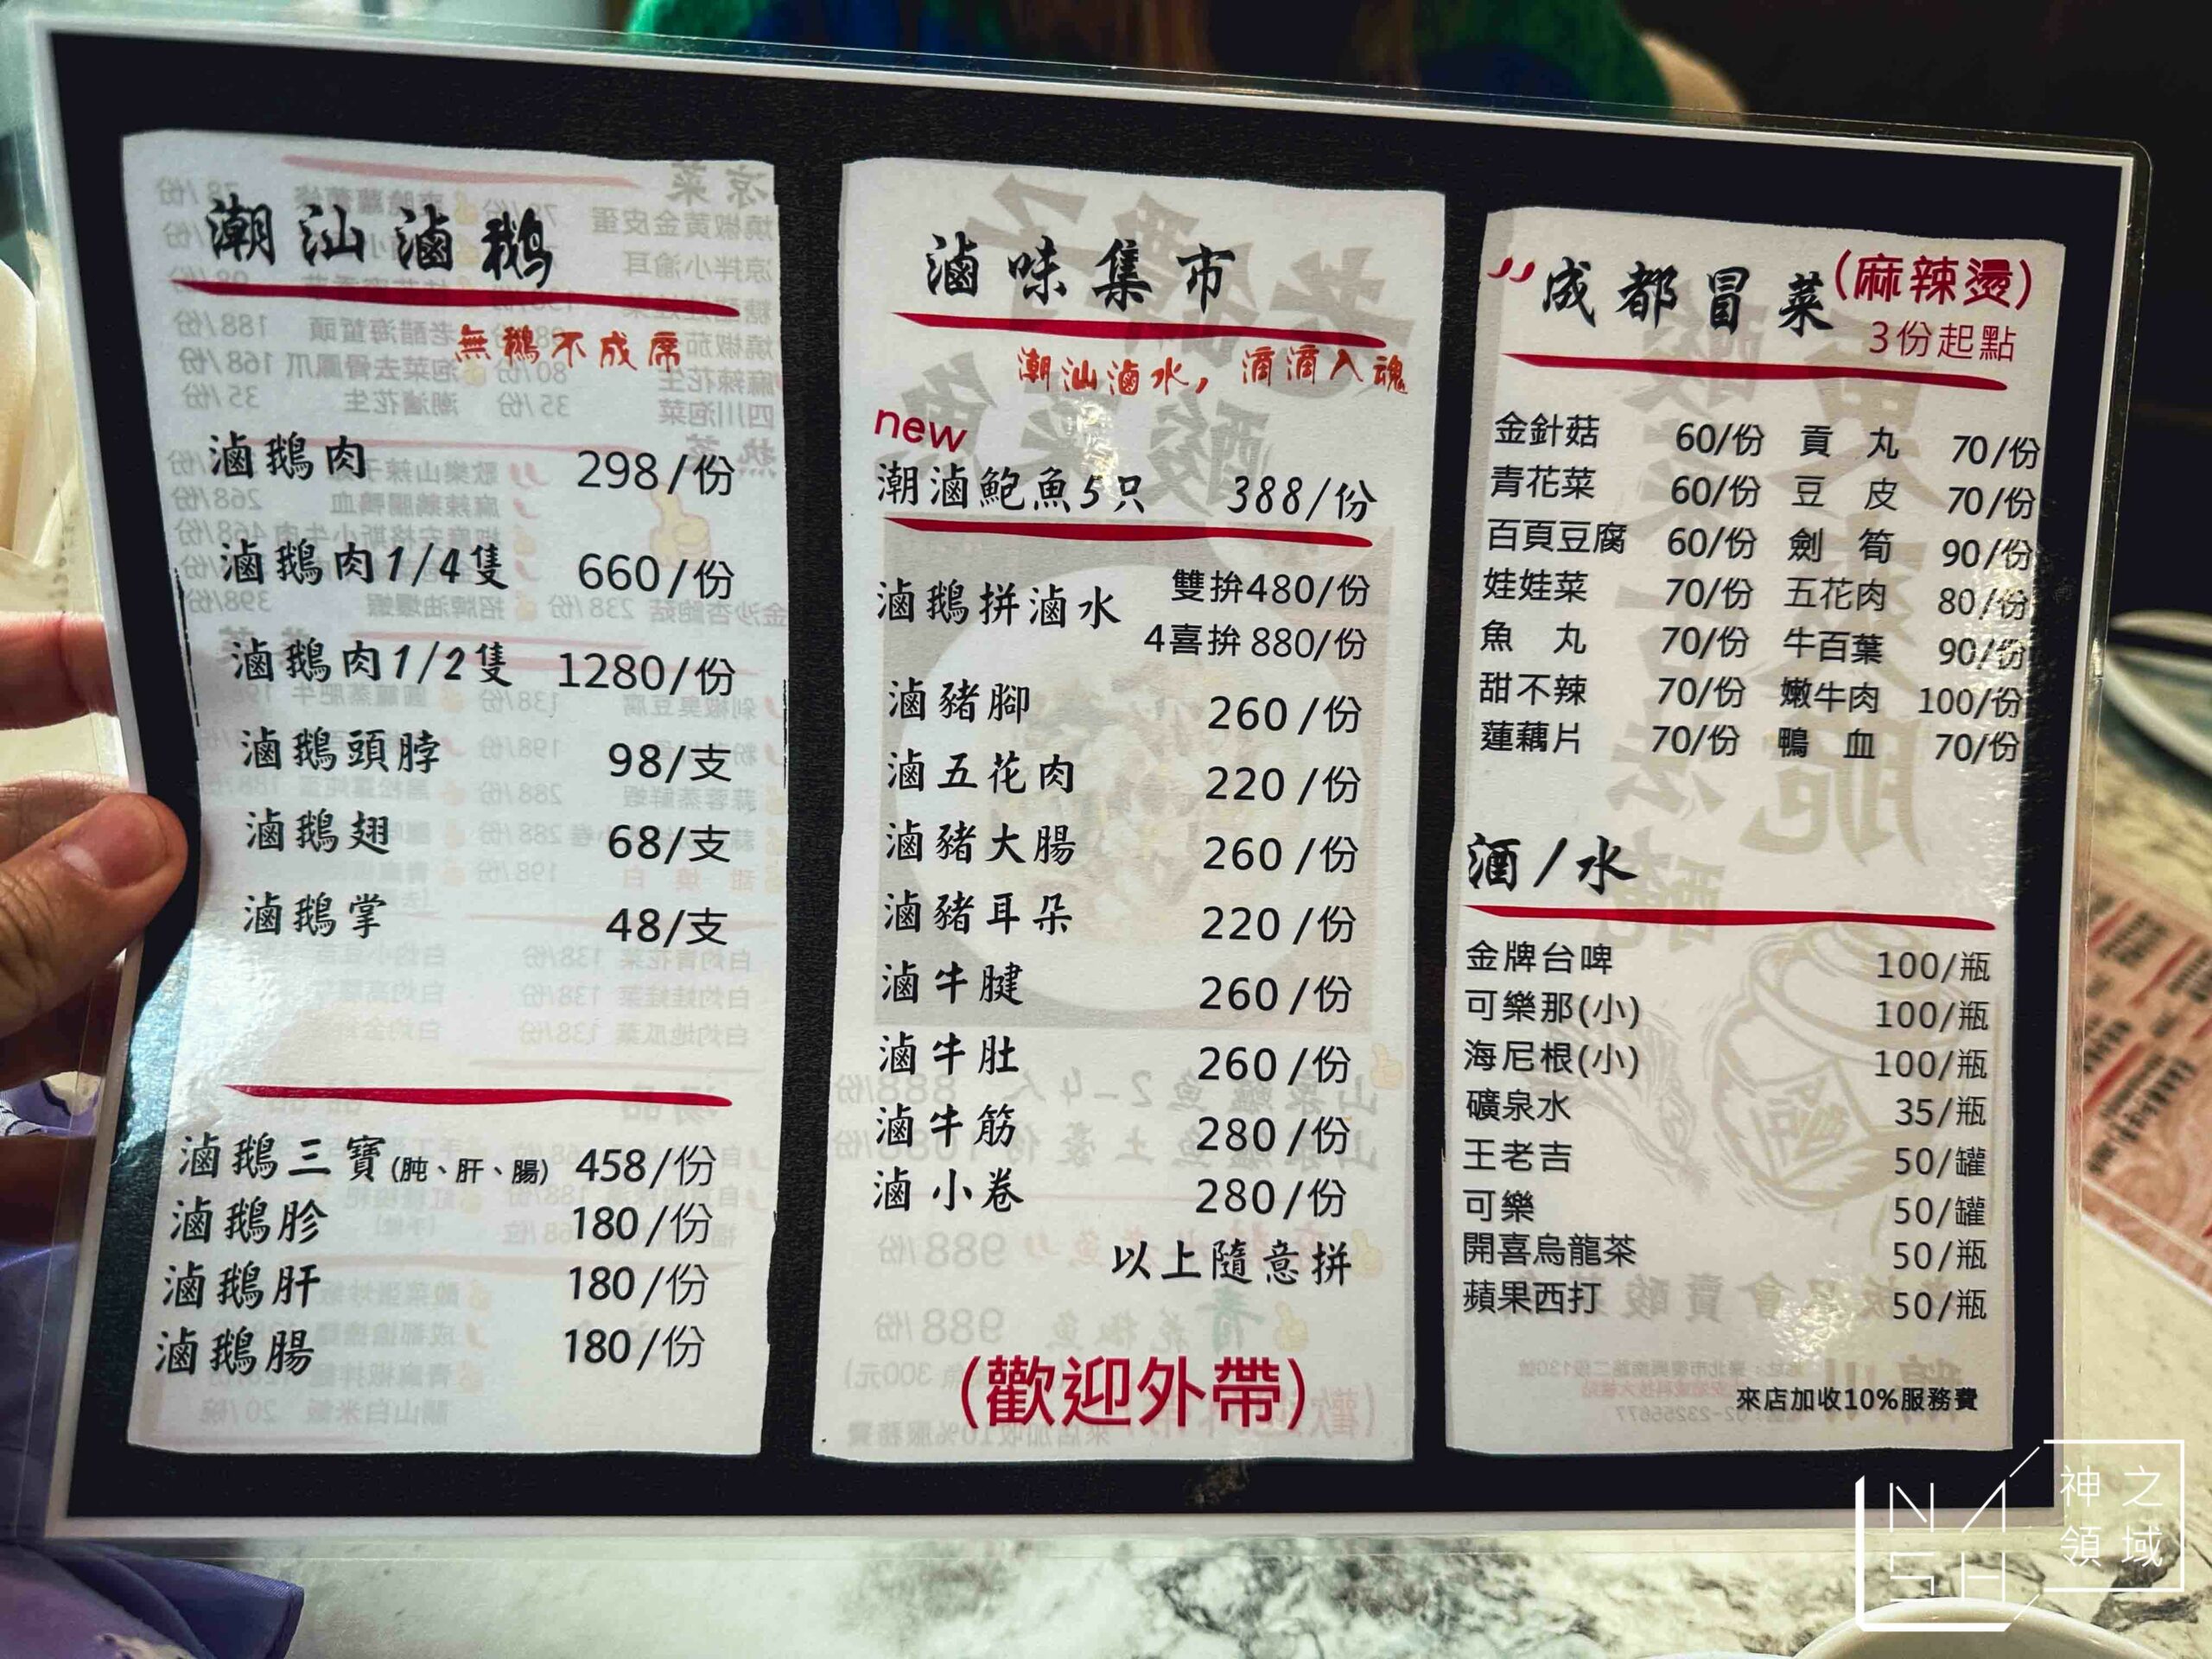 潮汕滷鵝
無鵝不成席
滷鵝肉 298/份
滷鵝肉1/4隻 660/份
滷鵝肉1/2隻 1280/份
滷鵝頭脖 98/支
滷鵝翅 68/支
滷鵝掌 48/支
滷鵝三寶(肫、肝、腸) 458/份
滷鵝胗 180/份
滷鵝肝 180/份
滷鵝腸 180/份
滷味集市
潮汕滷水，滴滴入魂
new
潮滷鮑魚5只 388/份
滷鵝拼滷水 雙拚480/份
4喜拚880/份
滷豬腳 260/份
滷五花肉 220/份
滷豬大腸 260/份
滷豬耳朵 220/份
滷牛腱 260/份
滷牛肚 260/份
滷牛筋 280/份
滷小卷 280/份
以上隨意拼
(歡迎外帶)
成都冒菜(麻辣燙)
3份起點
金針菇 60/份 貢丸 70/份
青花菜 60/份 豆皮 70/份
百頁豆腐 60/份 劍筍 90/份
娃娃菜 70/份 五花肉 80/份
魚丸 70/份 牛百葉 90/份
甜不辣 70/份 嫩牛肉 100/份
蓮藕片 70/份 鴨血 70/份
酒/水
金牌台啤 100/瓶
可樂那(小) 100/瓶
海尼根(小) 100/瓶
礦泉水 35/瓶
王老吉 50/罐
可樂 50/罐
開喜烏龍茶 50/瓶
蘋果西打 50/瓶
來店加收10%服務費
NASH
神之
領域